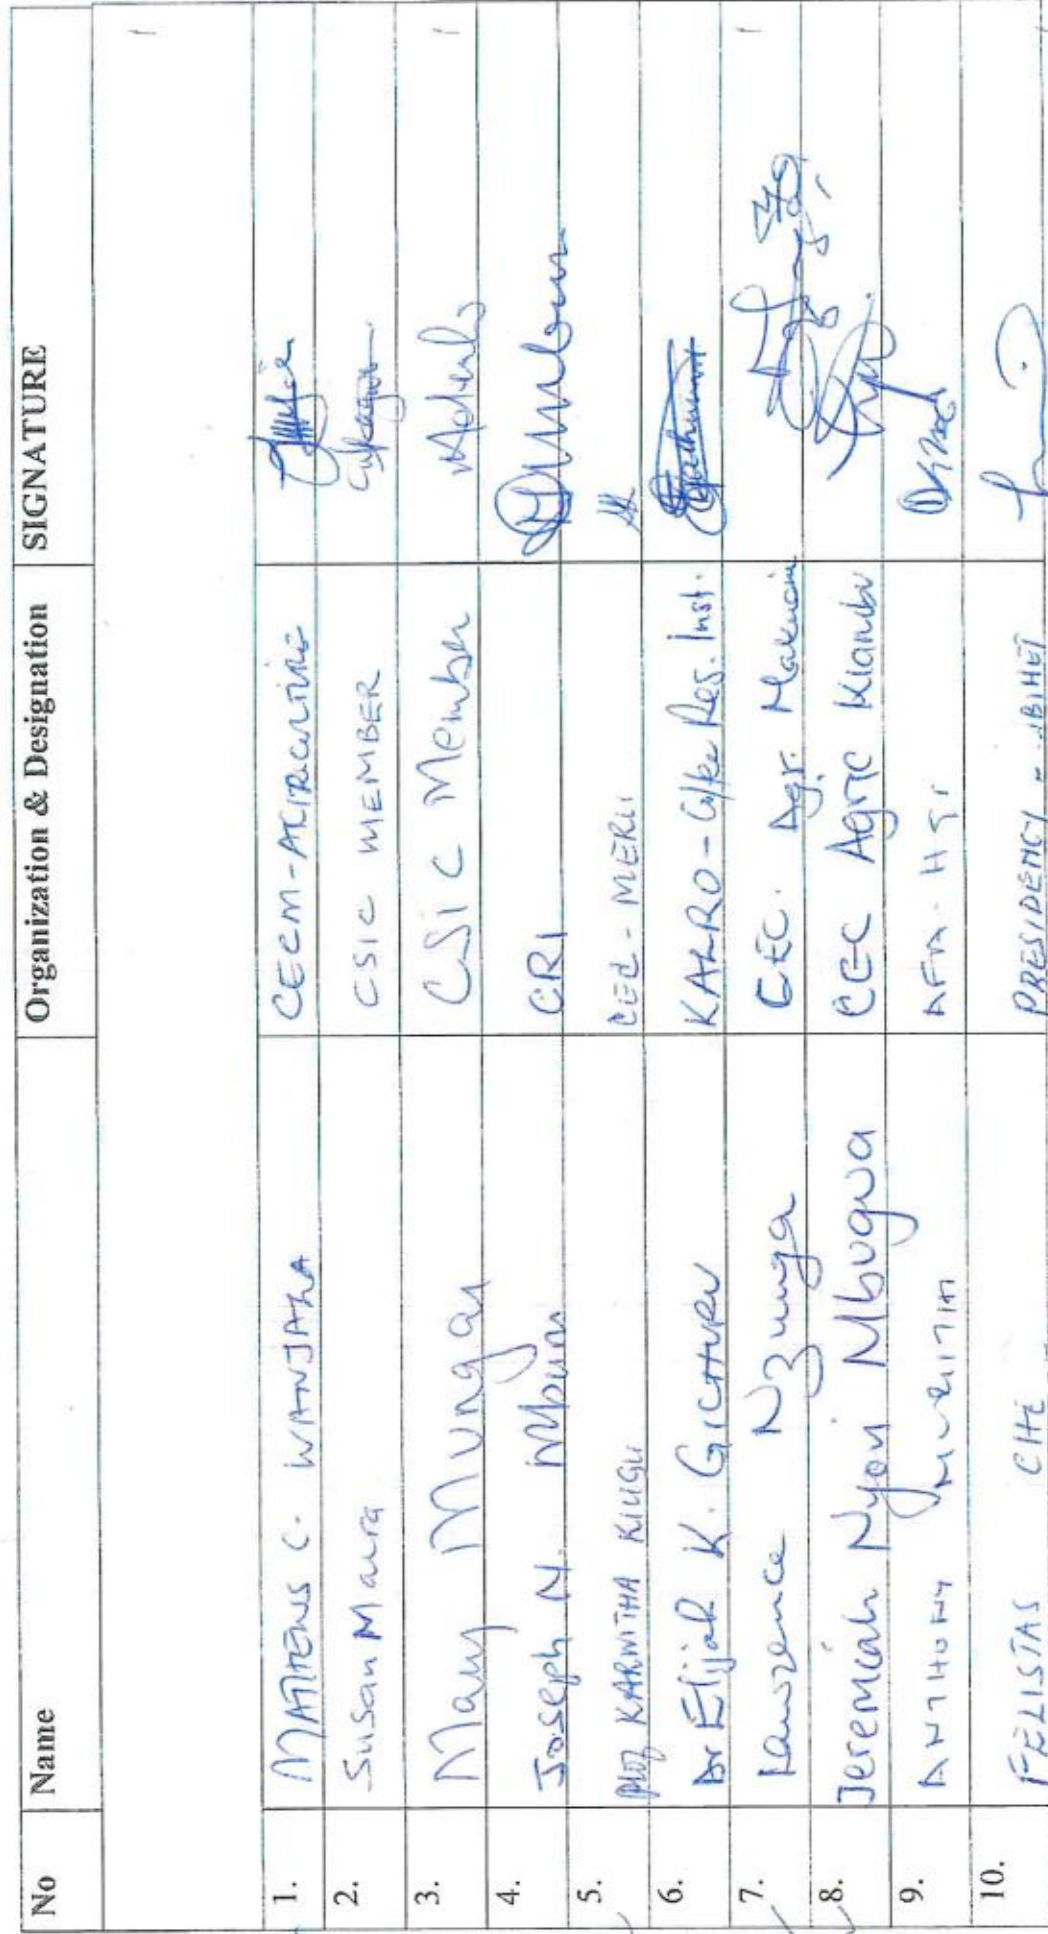 No Name Organization & Designation SIGNATURE
1. MATHEWS C. WANJALA CECM-AGRICULTURE
2. Susan Maura CSIC MEMBER
3. Mary Mungai CSIC Member
4. Joseph N. Mburu CRI
5. KARWITHA KIUGU CEC - MERU
6. Dr Elijah K. GICHURU KALRO - Coffee Res. Inst.
7. Lawrence Nzunga CEC. Agr. Makueni
8. Jeremiah Nyori Mbugwa CEC Agric Kiambu
9. ANTHONY MURIITHI AFA-
10. FELISTAS PRESIDENCY -